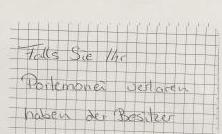 Falls Sie Ihr
Portemonei verlaren
haben der Besitzer